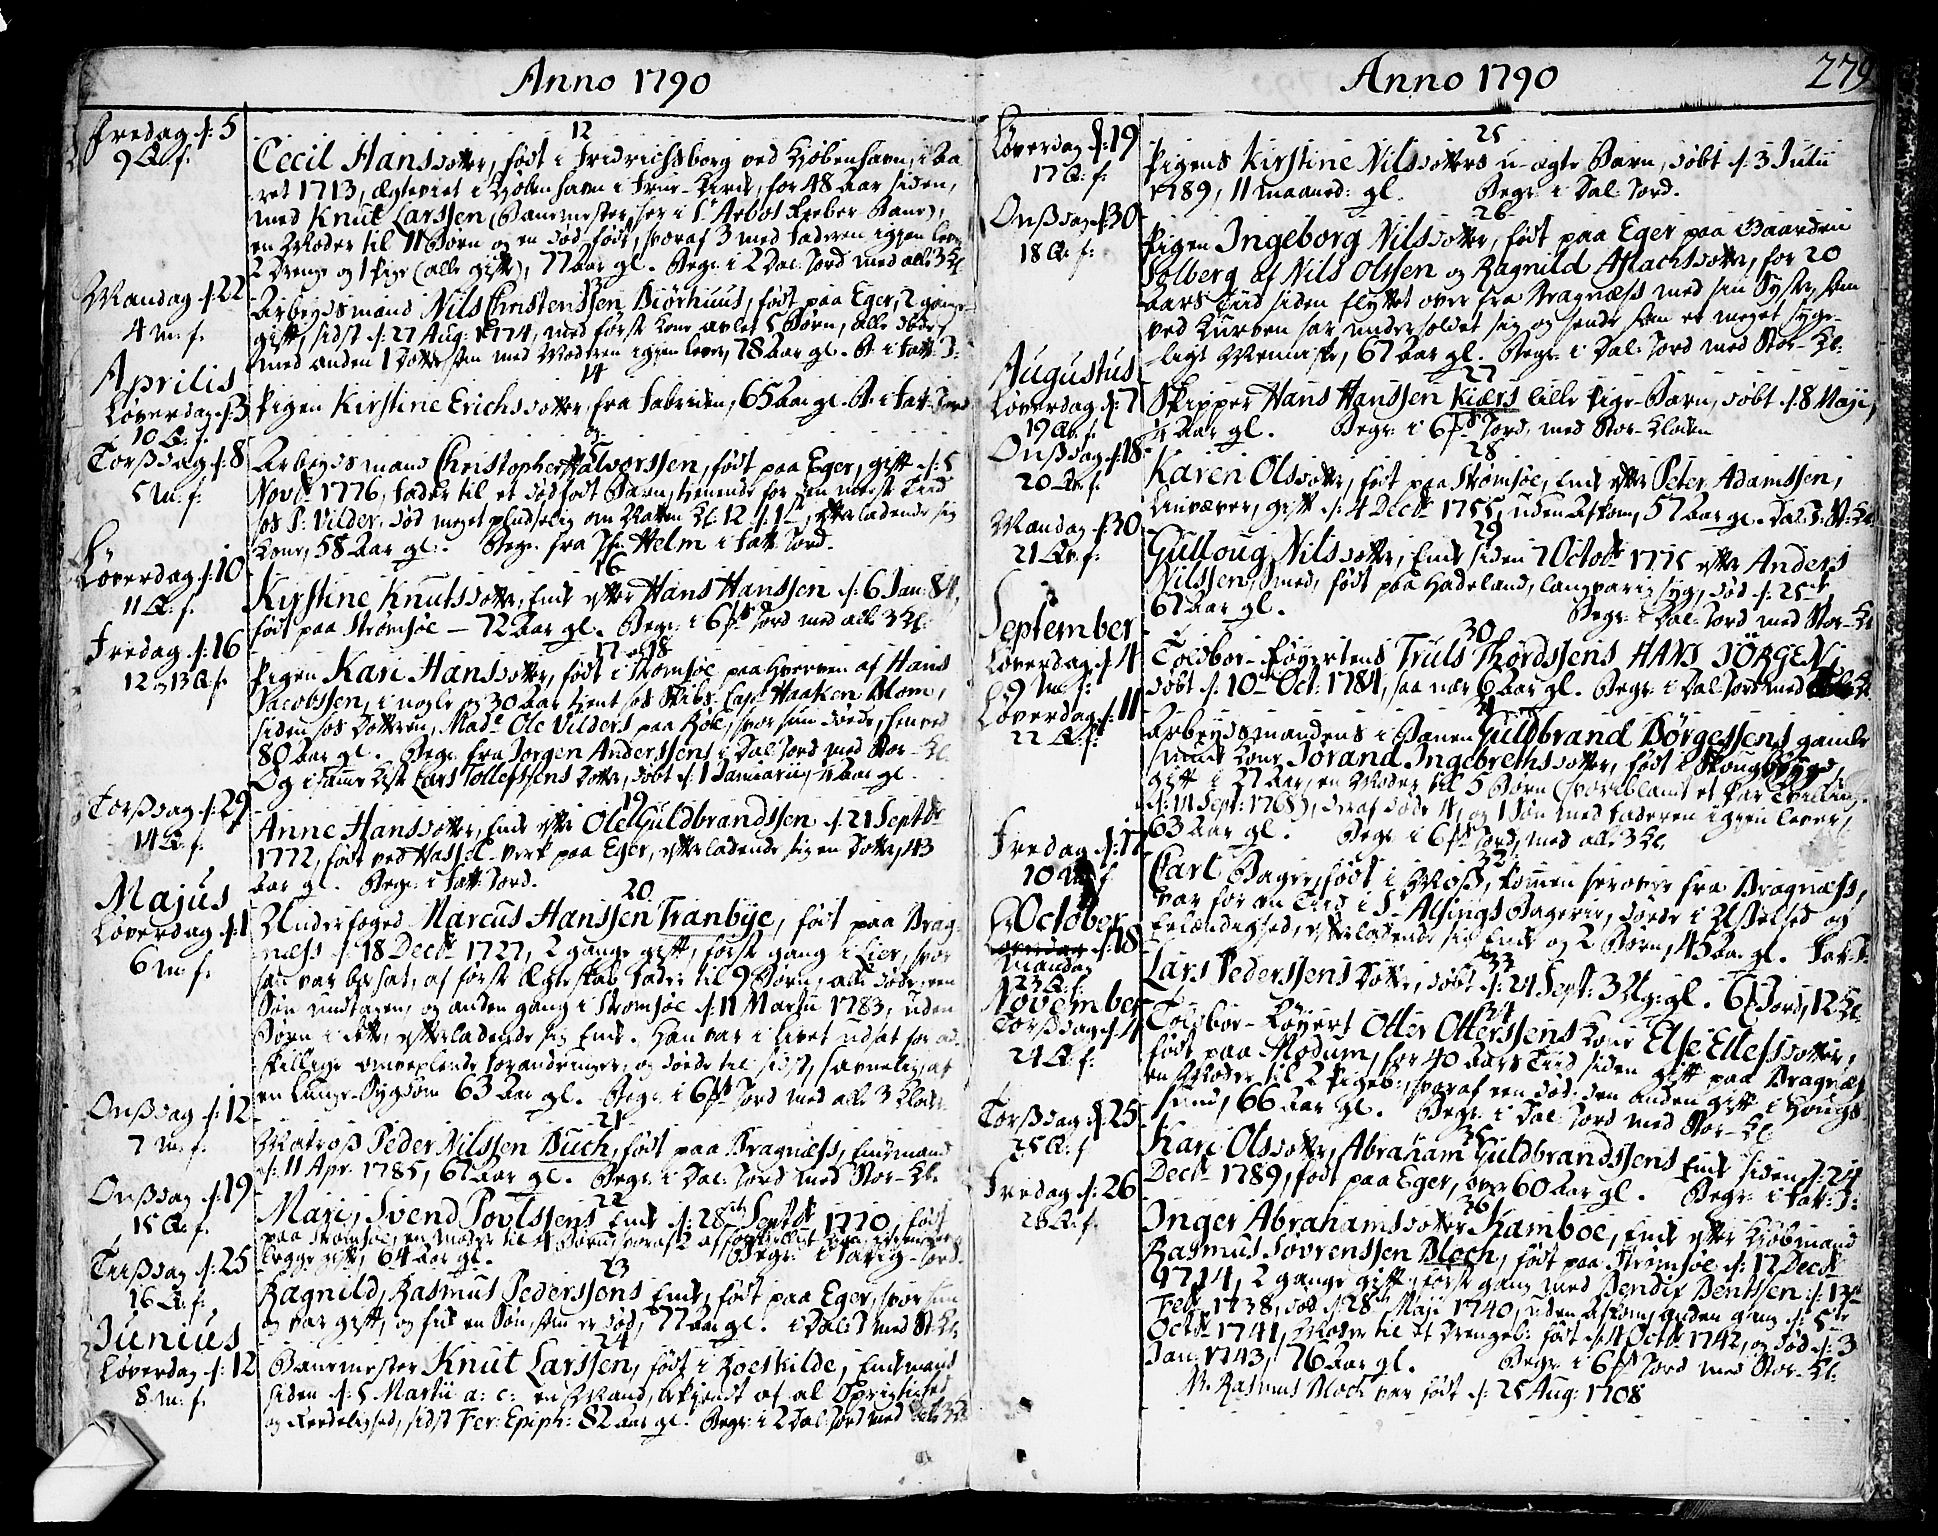 Anno 1790
Fredag d: 5
9 Q. f.
12
Cecil Hansdotter, født i Fridrichsborg ved Kiøbenhavn, i Aa
ret 1713, ægteviet i Kiøbenhavn i Frue-Kirke, for 48 Aar siden,
med Knut Larssen (Banemester her i Sr Arbos Reeber-Bane),
en Moder til 11 Børn og en død født, hvoraf 3 med Faderen igjen lever
2 Drenge og 1 Pige (alle gifte), 77 Aar gl. Begr: i 2 Dal: Jord med alle 3 Kl.
Mandag d: 22
4 M: f.
13
Arbeydsmand Nils Christenssen Biørhuus, født paa Eger, 2 gange
gift, sidst d: 27 Aug: 1774, med første Kone avlet 5 Børn, alle døde,
med anden 1 Dotter, som med Moderen igjen lever, 78 Aar gl. B. i Fatt: J:
Aprilis
Løverdag d: 3
10 Q. f.
14
Pigen Kirstine Erichsdotter, fra Fabriken, 65 Aar gl. B. i Fatt: Jord
Torsdag d: 8
5 M: f.
15
Arbeydsmand Christopher Halvorssen, født paa Eger, gift d: 5
Novbr 1776, Fader til et dødfødt Barn, tienende for den meste Tiid
hos P: Vilder, død meget pludselig om Natten Kl: 12 d: 1ste, efterladende sig
Kone, 58 Aar gl. Begr. fra Helm i Fatt: Jord.
Løverdag d: 10
11 Q. f.
16
Kirstine Knutsdotter, Enke efter Hans Hanssen d: 6 Jan: 84,
født paa Strømsøe – 72 Aar gl. Begr: i 6 Jord med alle 3 Kl:
Fredag d: 16
12 og 13 Q. f.
17 og 18
Pigen Kari Hansdotter, født i Strømsøe paa Hverven af Hans
Jacobssen, i nogle og 30 Aar tient hos Skibs-Capt: Haaken Blom,
siden hos Dotteren, Made Ole Vilders paa hvor hun døde, henved
80 Aar gl. Begr. fra Jørgen Anderssens i Dal: Jord med Stor-Kl.
Og i samme Kiste Lars Tollefssens Dotter, døbt d: 1 Januarii, ¼ Aar gl.
Torsdag d: 29
14 Q. f.
19
Anne Hansdotter, Enke efter Ole Guldbrandssen d: 21 Septbr
1772, født ved Hassel-Verk paa Eger, efterladende sig en Dotter, 43
Aar gl. Begr: i Fatt: Jord.
Majus
Løverdag d: 1
6 M: f.
20
Underfoged Marcus Hanssen Tranbye, født paa Brag-
næss d: 18 Decbr 1727, 2 gange gift, første gang i Lier, hvor
han var bosat, af første Ægteskab Fader til 9 Børn, alle døde, een
Søn undtagen, og anden gang i Strømsøe d: 11 Martii 1783, uden
Børn i dette, efterladende sig Enke. Han var i Livet udsat for ad-
skillige omvexlende Forandringer, og døde til sidst, havnelig, af
en Lunge-Sygdom 63 Aar gl. Begr: i 6 Jord med alle 3 Klok:
Onsdag d: 12
7 M: f.
21
Matros Peder Nilssen Buch, født paa Bragnæss, Enkemand
d: 11 Apr. 1785, 67 Aar gl. Begr: i Dal: Jord med Stor-Kl.
Onsdag d: 19
15 Q. f.
22
Mari, Svend Povlssens Enke d: 28de Septbr 1770, født
paa Strømsøe, en Moder til 4 Børn, hvoraf 2
begge gifte, 64 Aar gl. Begr: i Fattig-Jord.
Tiisdag d: 25
16 Q. f.
23
Ragnild, Rasmus Pederssens Enke, født paa Eger, hvor hun
og var gift, og fik en Søn, som er død, 77 Aar gl. i Dal: J med St: Kl.
Junius
Løverdag d: 12
8 M: f.
24
Banemester Knut Larssen, født i Roeskilde, Enkemand
siden d: 5 Martii a: c: en Mand, bekjendt af al Oprigtighed
og Reedelighed, sidst Fer: Epiph: 82 Aar gl. Begr: i 2 Dal: Jord med alle 3 Kl.
Anno 1790
279
Løverdag d: 19
17 Q. f.
25
Pigens Kirstine Nilsdotters u-ægte Barn, døbt d: 3 Julii
1789, 11 maaned: gl. Begr: i Dal: Jord.
Onsdag d: 30
18 Q. f.
26
Pigen Ingeborg Nilsdotter, født paa Eger paa Gaarden
Solberg af Nils Olssen og Ragnild Aslachsdotter, for 20
Aars Tiid siden flyttet over fra Bragnæss med sin Syster, som
ved Kurven har underholdet sig og hende, som er meget syge-
ligt Menniske, 67 Aar gl. Begr: i Dal: Jord med Stor-Kl:
Augustus
Løverdag d: 7
19 Q. f.
27
Skipper Hans Hanssen Kiærs lille Pige-Barn, døbt d: 8 Maji,
¼ Aar gl. Begr: i 6 Jord, med Stor-Klokken
Onsdag d: 18
20 Q. f.
28
Karen Olsdotter, født paa Strømsøe, Enke efter Peter Adamssen,
Linvæver, gift d: 4 Decbr 1755, uden Afkom, 57 Aar gl. Dal: J: St: Kl
Mandag d: 30
21 Q. f.
29
Gulloug Nilsdotter, Enke siden 7 Octobr 1775 efter Anders
Nilssen, Smed, født paa Hadeland, langvarig syg, død d: 25de,
67 Aar gl. Begr: i Dal: Jord med Stor-Kl
September
Løverdag d: 4
9 M: f:
30
Toldboe-Røyertens Truls Thordssens HANS JÖRGEN
døbt d: 10de Oct: 1784, saa nær 6 Aar gl. Begr. i Dal: Jord med Kl
Løverdag d: 11
22 Q. f:
31
Arbeydsmandens i Banen Guldbrand Børgessens gamle
Kone Jorand Ingebrethsdotter, født i Skougbøygd,
gift i 27 Aar, en Moder til 5 Børn (hvoriblandt et Par Tvillinge
d: 11 Sept: 1768), deraf døde 4, og 1 Søn med Faderen igien lever,
63 Aar gl. Begr: i 6 Jord, med alle 3 Kl.
Fredag d: 17
10 M: f.
32
Carl Bager, født i Moss, kommen herover fra Bragnæss,
var for en Tiid i Sr Alsings Bagerie, døde i Usselhed og
Elændighed, efterladende sig Enke og 2 Børn, 45 Aar gl. Fat: J:
October
Mandag d: 18
23 Q. f.
33
Lars Pederssens Dotter, døbt d: 24 Sept: 3 Ug: gl. 6 Jord, 12 Kl.
November
Torsdag d: 4
24 Q. f.
34
Toldboe-Røyert Otter Otterssens Kone Else Ellefsdotter,
født paa Modum, for 40 Aars Tiid siden gift paa Bragnæs
en Moder til 2 Pigeb:, hvoraf een død, den anden gift i Kongs-
sund, 66 Aar gl. Begr: i Dal: Jord med Stor-Kl
Torsdag d: 25
25 Q. f
35
Kari Olsdotter, Abraham Guldbrandssens Enke siden d: 24
Decbr 1789, født paa Eger, over 60 Aar gl. Begr: i Fat: J:
Fredag d: 26
26 Q. f.
36
Inger Abrahamsdotter Kamboe, Enke efter Kiøbmand
Rasmus Sövrenssen Bloch, født paa Strømsøe d: 17 Decbr
1714, 2 gange gift, første gang med Bendix Bentssen d: 13de
Febr 1738, død d: 28de Maji 1740, uden Afkom, anden gang d: 5te
Octbr 1741, Moder til et Drengeb: født d: 4 Octbr 1742, og død d: 3
Jan: 1743, 76 Aar gl. Begr: i 6 Jord med Stor-Kl:
N. Rasmus Bloch var født d: 25 Aug: 1708